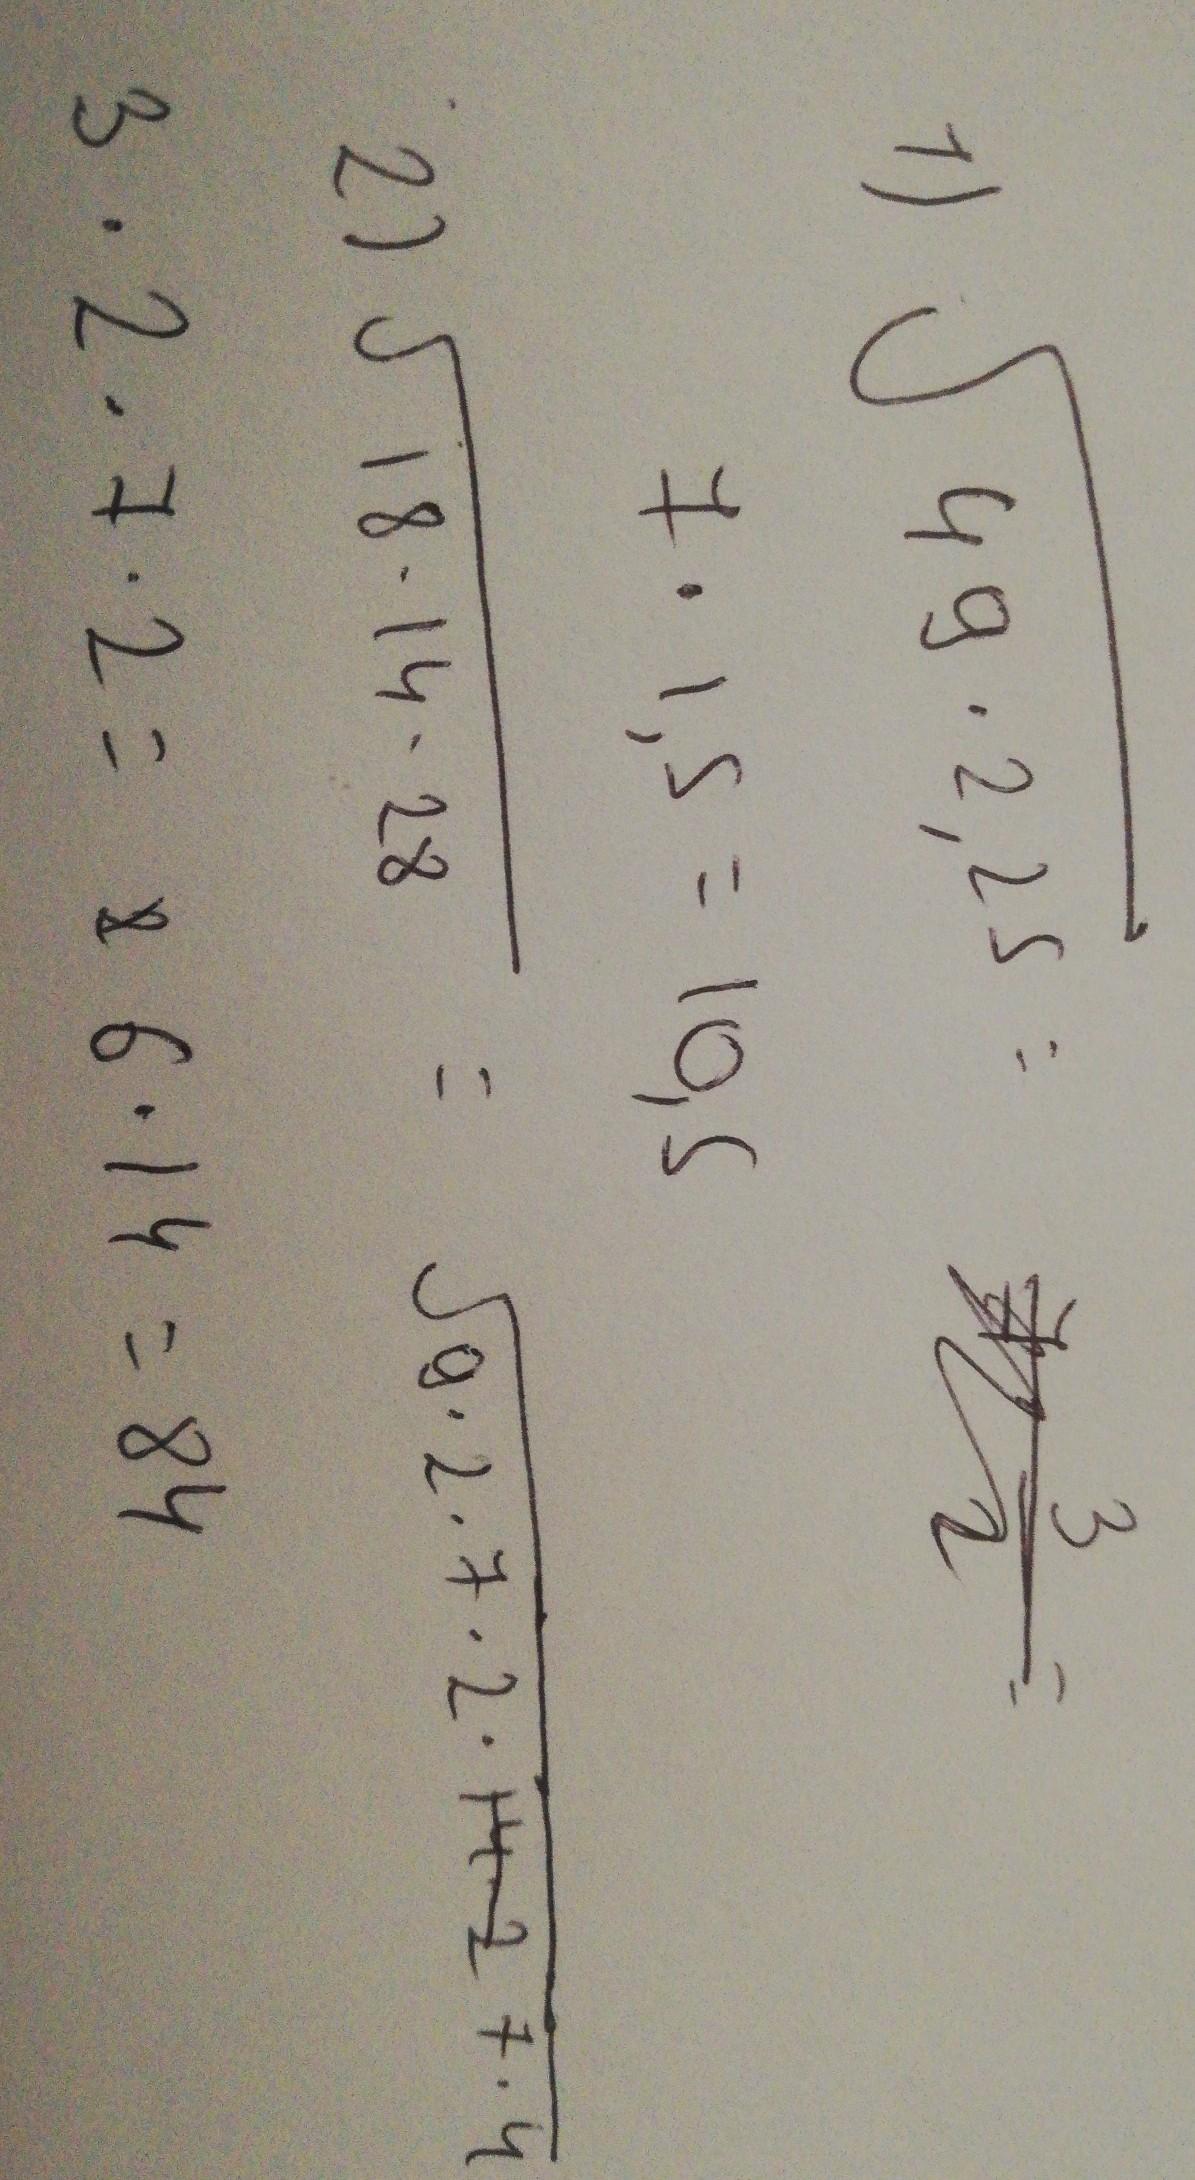 1) √49·2,25 = 3/2 =
7·1,5 = 10,5
2) √18·14·28 = √9·2·7·2·7·4
3·2·7·2 = 6·14 = 84